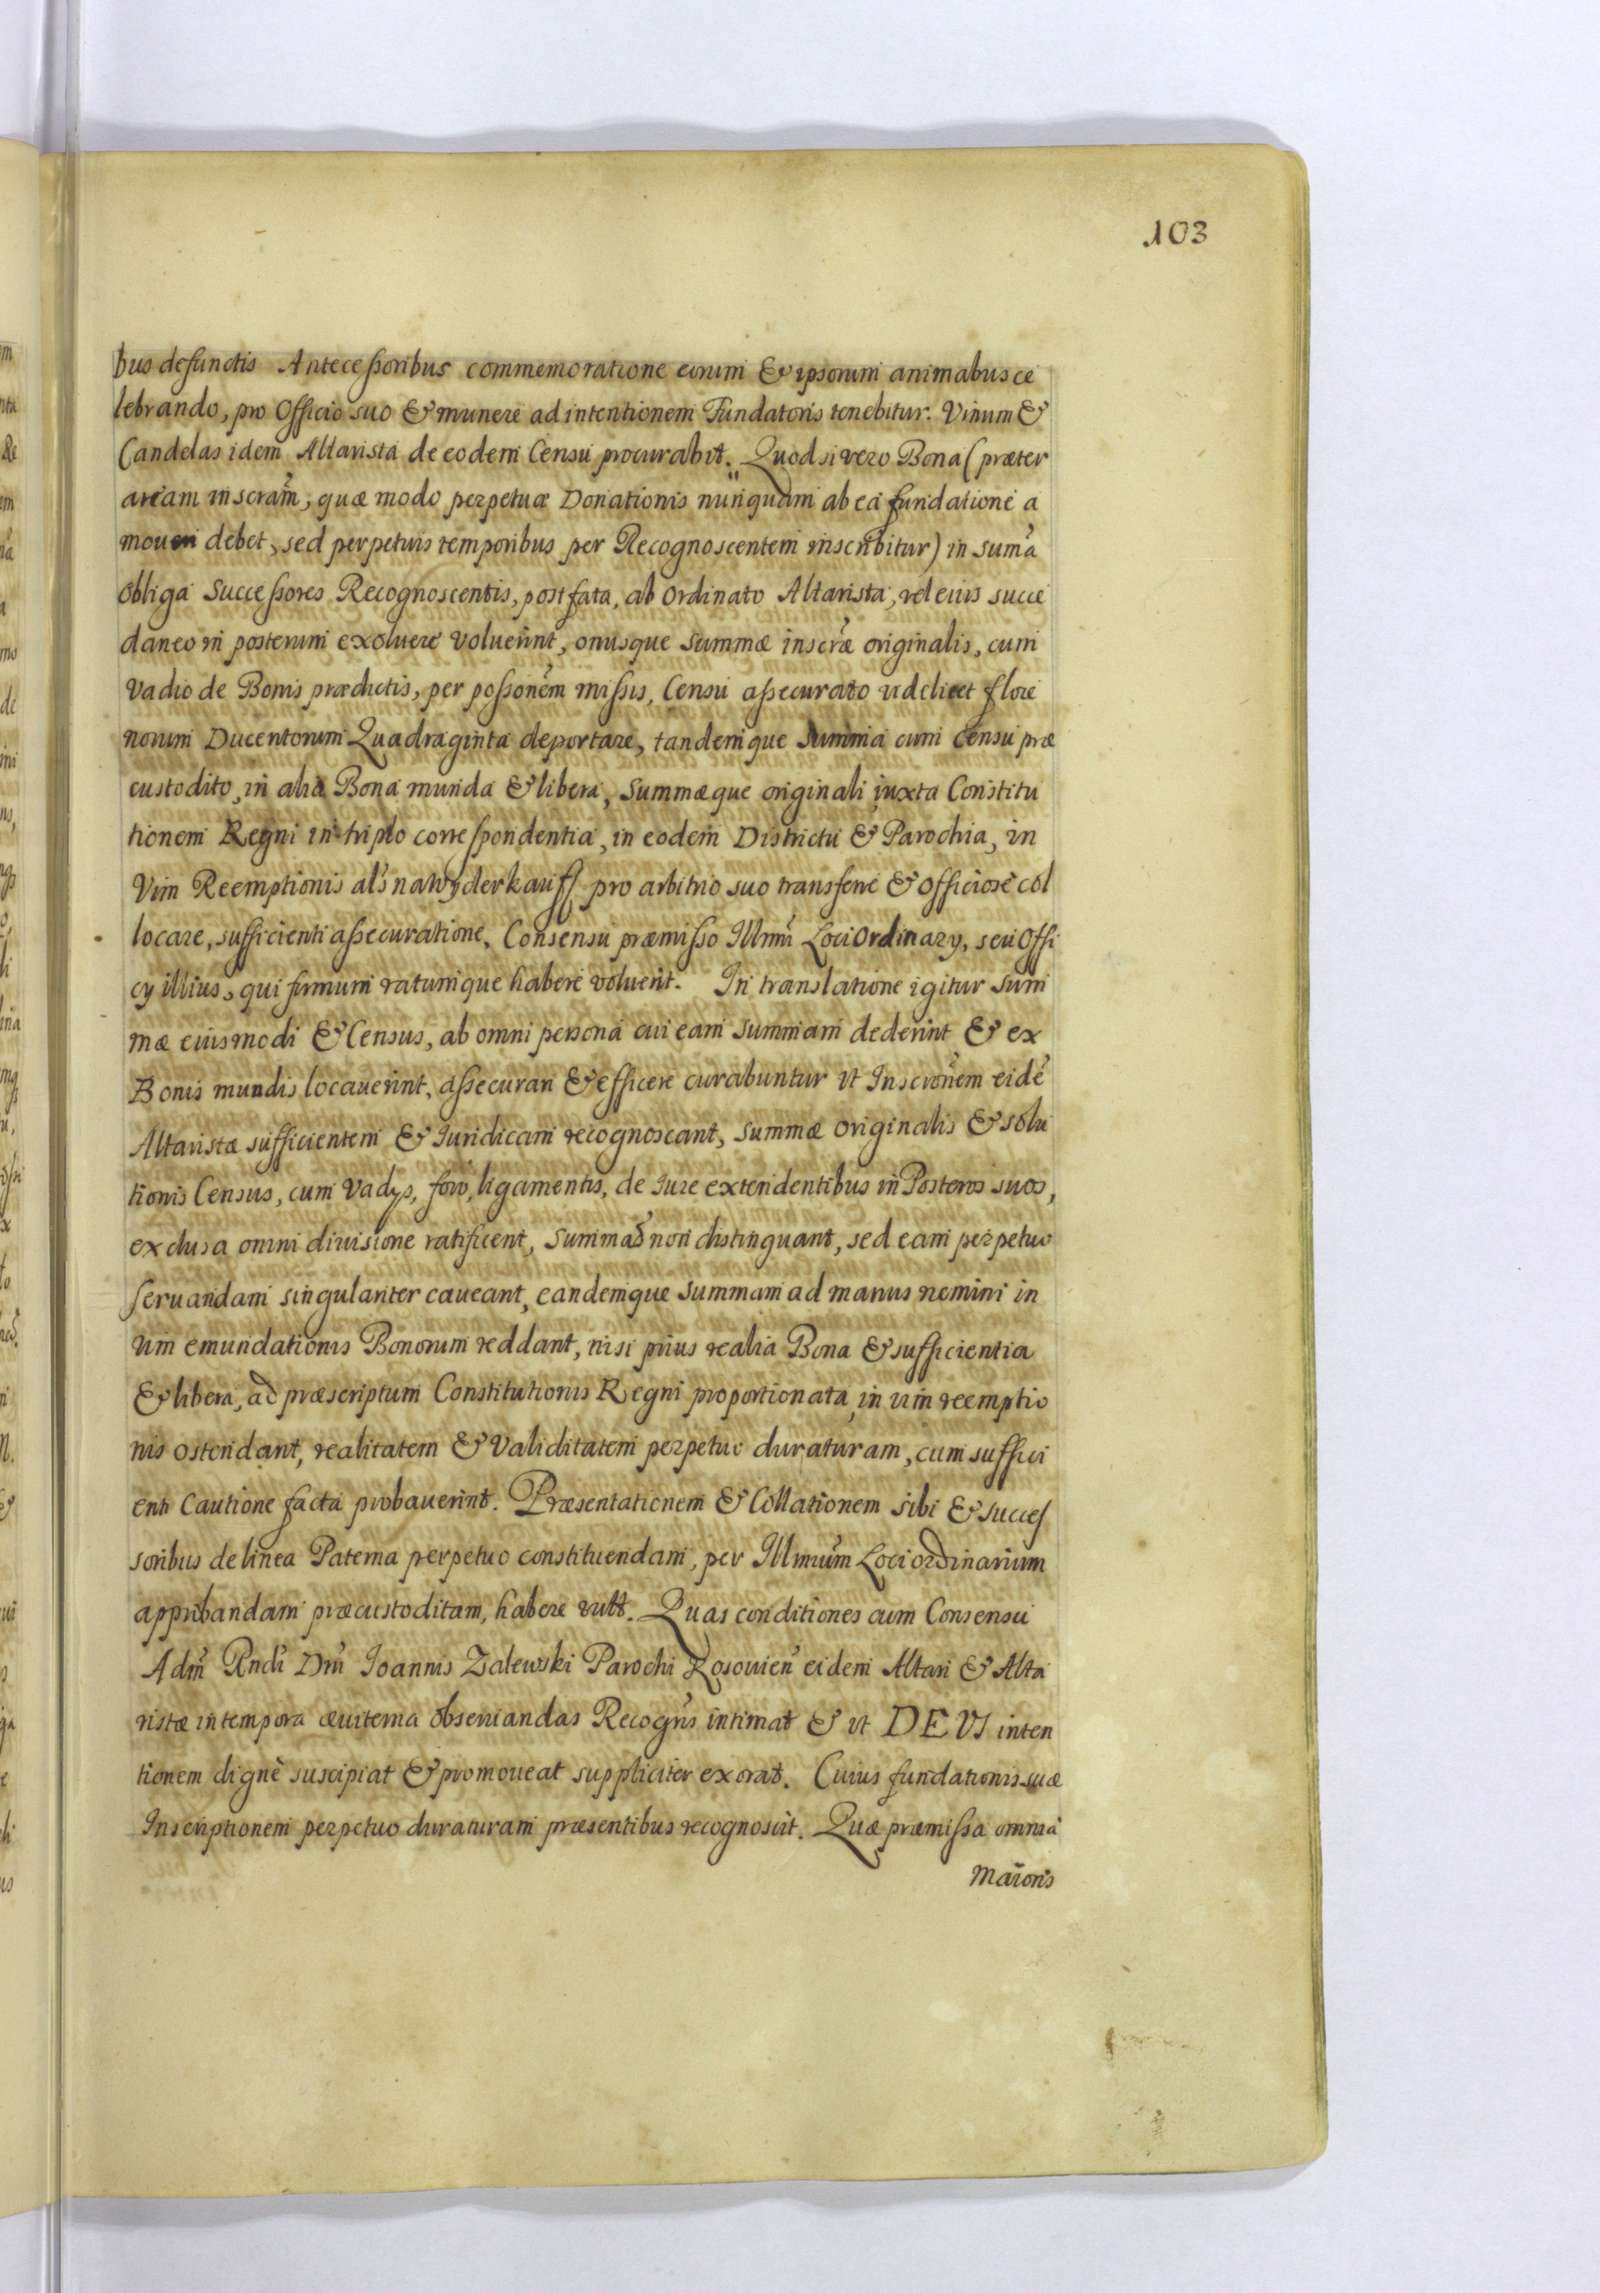 103
bus defunctis Antecessoribus commemoratione eorum & ipsorum animabus ce
lebrando, pro Officio suo & munere ad intentionem Fundatoris tenebitur. Vinum &
Candelas idem Altarista de eodem Censu procurabit. Quod si vero Bona (præter
aream inscram̃, quæ modo perpetuæ Donationis nunquam ab ea fundatione a
moueri debet, sed perpetuis temporibus per Recognoscentem inscribitur) in sum̃a
obliga Successores Recognoscentis, post fata, ab ordinato Altarista, vel eius succe
daneo in posterum exoluere voluerint, onusque Summæ inscræ̃ originalis, cum
vadio de Bonis prædictis, per possonem̃ missis, Censu assecurato videlicet flore
norum Ducentorum Quadraginta deportare, tandemque Summa cum Censu præ
custodito, in alia Bona munda & libera, Summæque originali iuxta Constitu
tionem Regni in triplo correspondentia, in eodem Districtu & Parochia, in
Vim Reemptionis als̃ na wyderkauff pro arbitrio suo transferre & officiosè col
locare, sufficienti assecuratione, Consensu præmisso Illmi Loci Ordinarij, seu Offi
cij illius, qui firmum ratumque habere voluerit. In translatione igitur sum
mæ eiusmodi & Census, ab omni persona cui eam summam dederint & ex
Bonis mundis locauerint, assecurari & efficere curabuntur vt Inscronem̃ eidẽ
Altaristæ sufficientem & Iuridicam recognoscant, summæ originalis & solu
tionis Census, cum vadijs, foro, ligamentis, de iure extendentibus in Posteros suos,
exclusa omni diuisione ratificent, summas̃ non distinguant, sed eam perpetuo
seruandam singulariter caueant, eandemque summam ad manus nemini in
vim emundationis Bonorum reddant, nisi prius realia Bona & sufficientia
& libera, ad præscriptum Constitutionis Regni proportionata, in vim reemptio
nis ostendant, realitatem & validitatem perpetuo duraturam, cum suffici
enti Cautione facta probauerint. Præsentationem & Collationem sibi & succes
soribus de linea Paterna perpetuo constituendam, per Illmum̃ Loci ordinarium
approbandam præcustoditam, habere vult. Quas conditiones cum Consensu
Adm̃ Rndi Dnĩ Ioannis Zalewski Parochi Rosouien̄ eidem Altari & Alta
ristæ in tempora æuiterna obseruandas Recogñs intimat & vt DEUS inten
tionem dignè suscipiat & promoueat suppliciter exorat. Cuius fundationis suæ
Inscriptionem perpetuo duraturam præsentibus recognoscit. Quæ præmissa omnia
Maioris